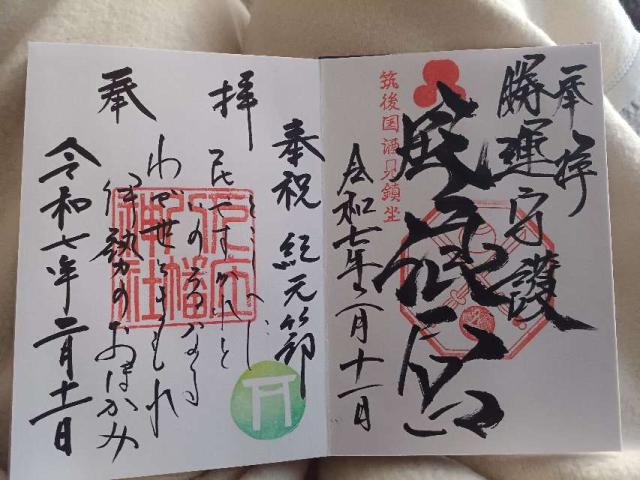 奉拝
勝運守護
風浪宮
筑後国酒見鎮坐
令和七年二月十一日
奉祝 紀元節
拝
とこしへに
民やすかれと
いのるなる
わが世をまもれ
伊勢のおほかみ
奉
令和七年二月十一日